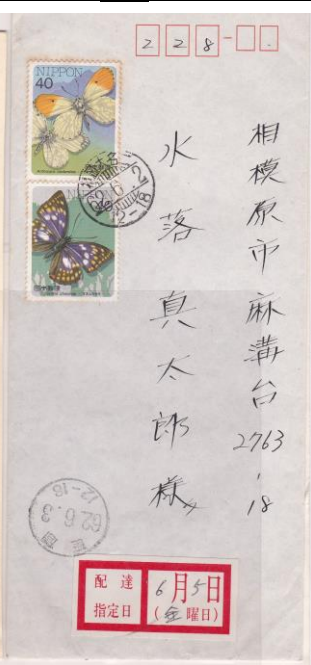 228-
NIPPON
40
62.6.2
12-18
相模原市麻溝台2763-18
水落真太郎様
62.6.3
12-18
配達
指定日
6月5日
(金曜日)